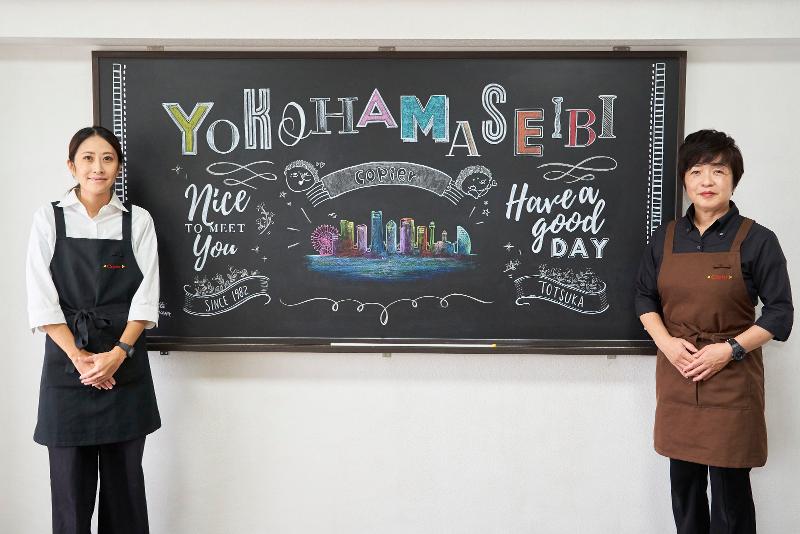 YOKOHAMASEIBI
Copier
Nice
TO MEET
You
Have a
good
DAY
SINCE 1982
TOTSUKA
Copier
Copier